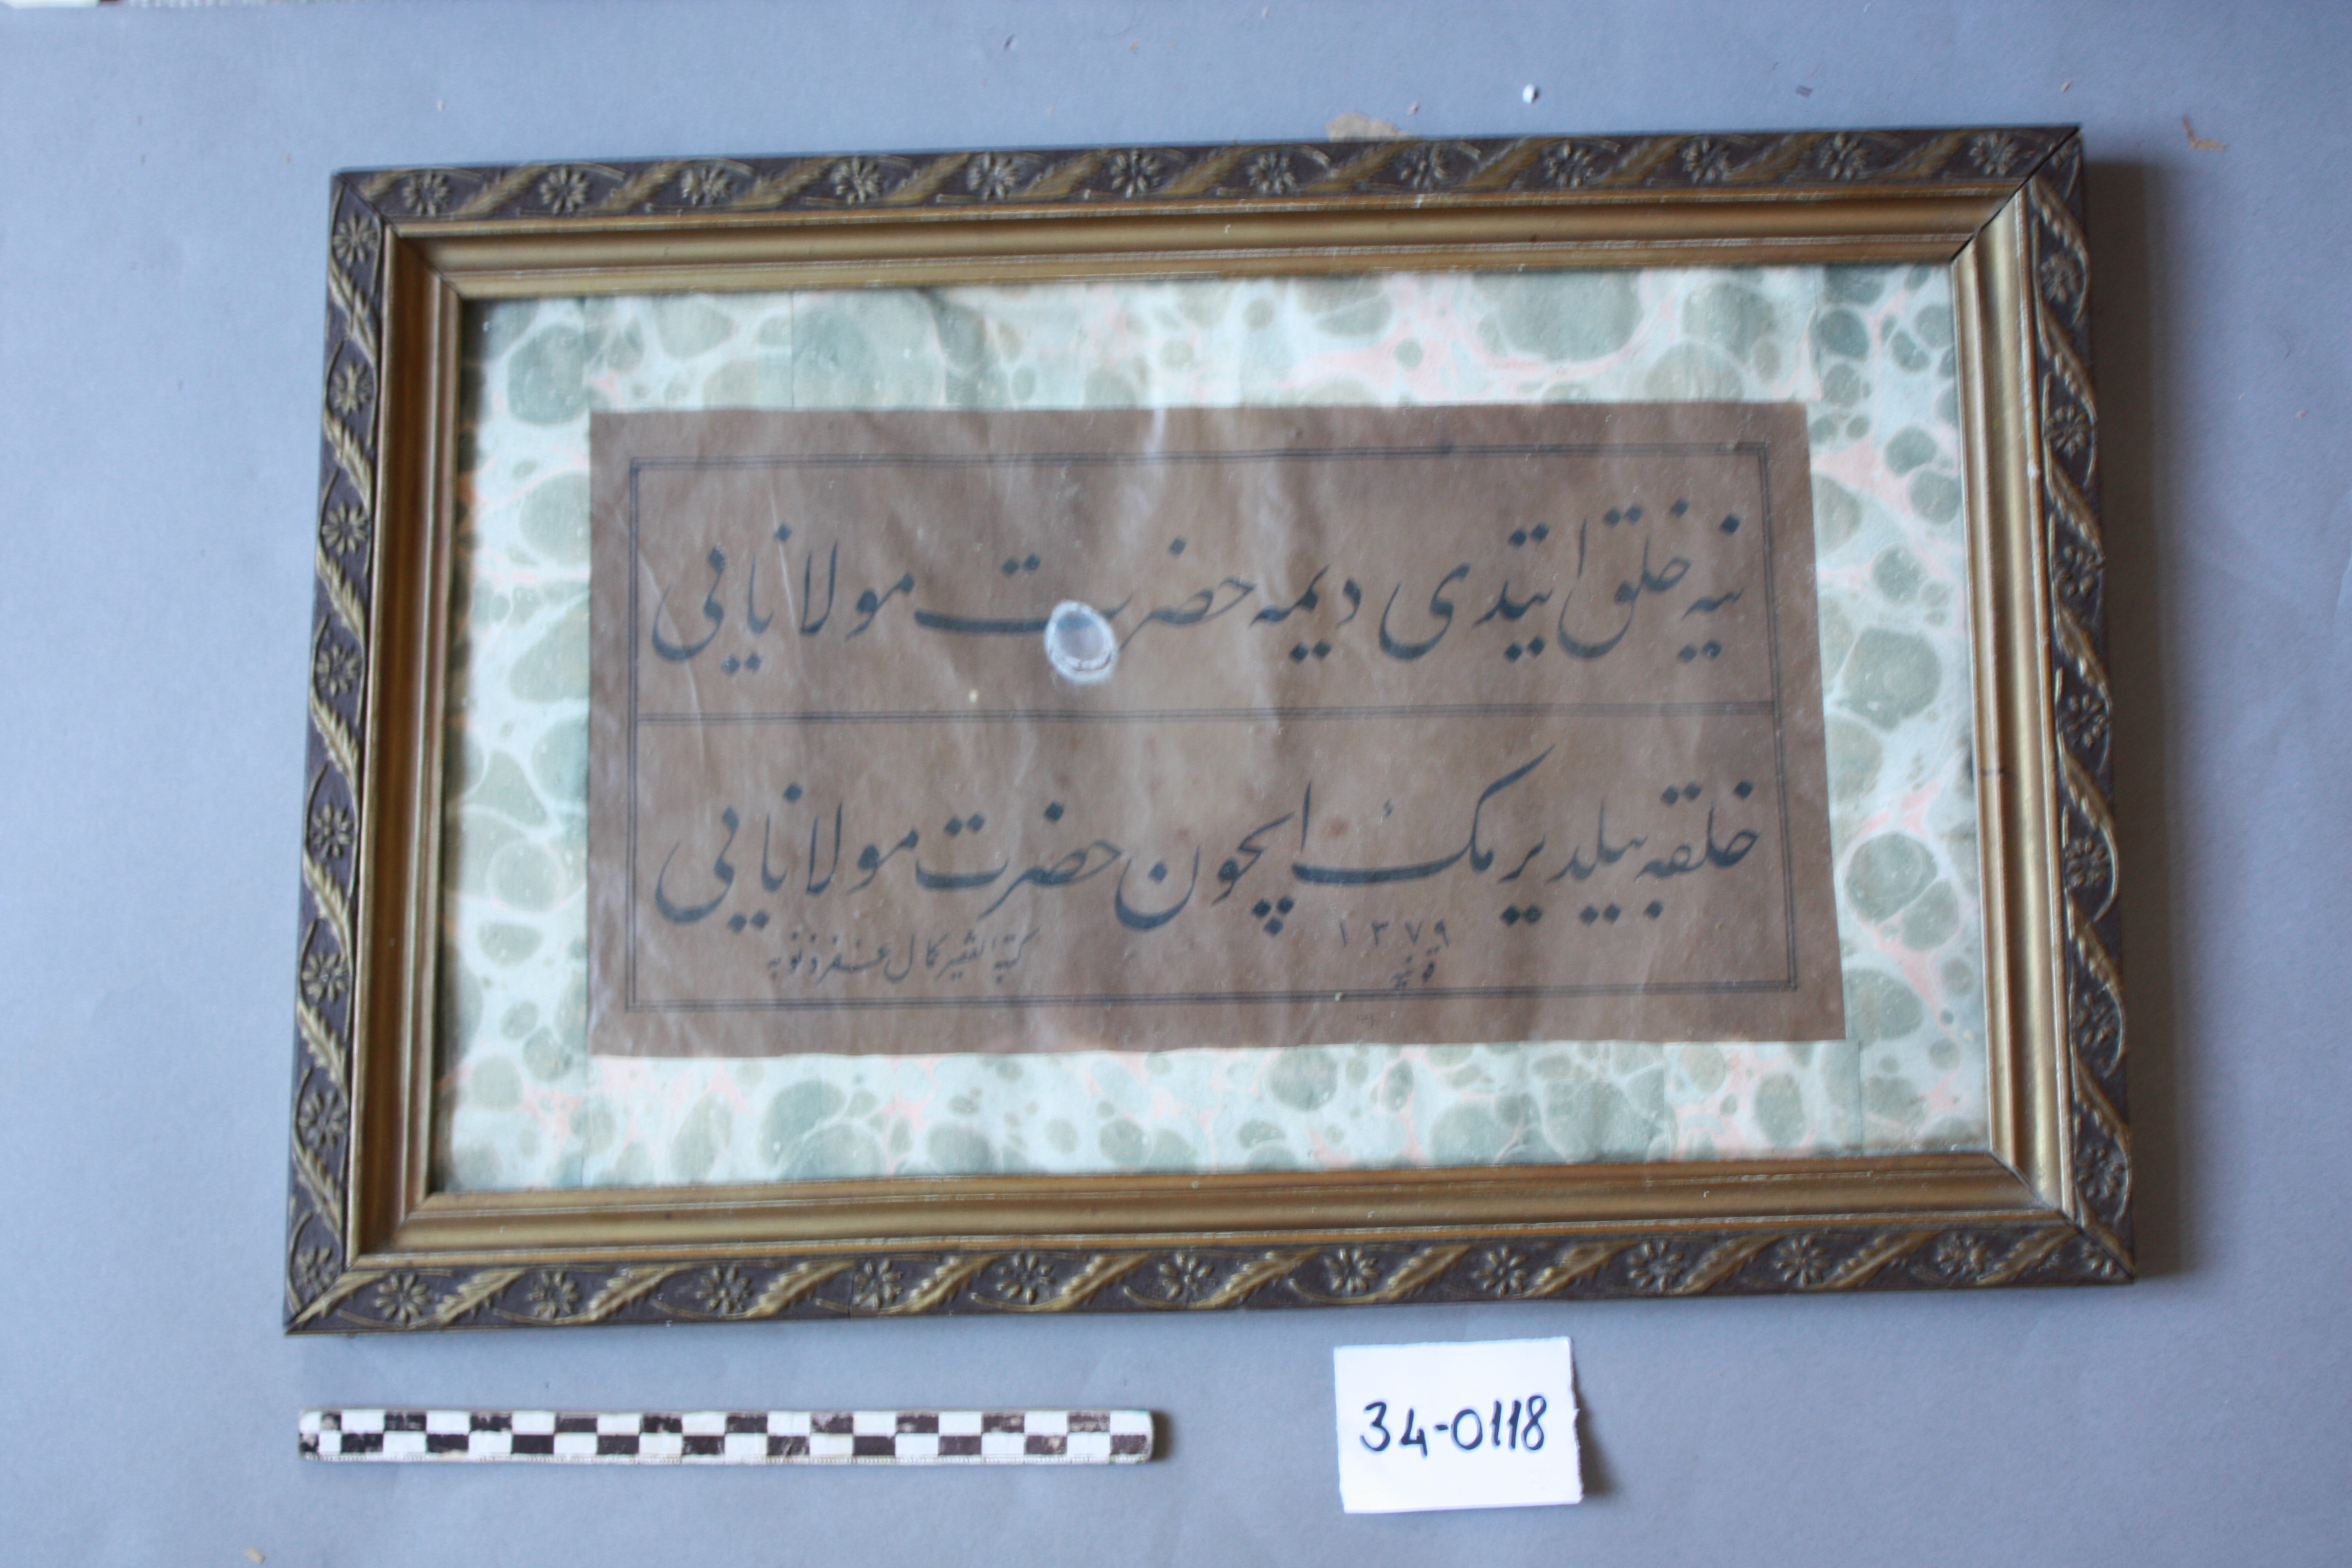 نیه خلق ایتدی دیمه حضرت مولانایی
خلقه بیلدیرمك ایچون حضرت مولانایی
١٣٧٩
كتبه الفقیر كمال غفر ذنوبه
34-0118